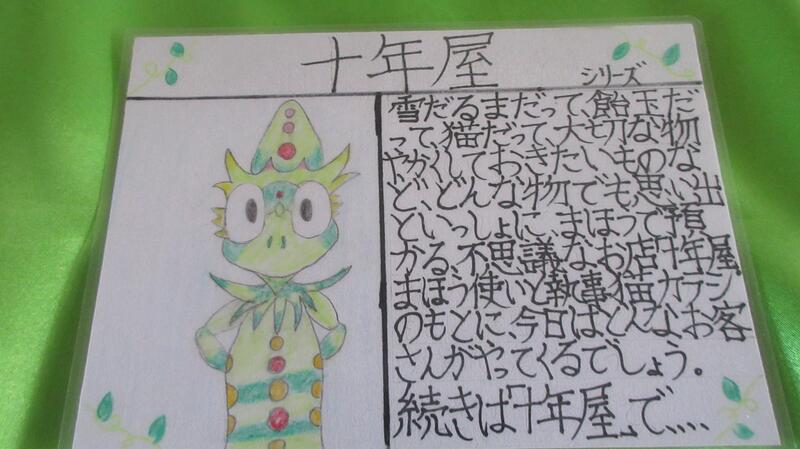 十年屋
シリーズ
雪だるまだって、飴玉だ
って、猫だって大切な物
やかくしておきたいものな
ど、どんな物でも、思い出
といっしょに、まほうで預
かる、不思議なお店「十年屋」
まほう使いと執事猫カラシ
のもとに、今日はどんなお客
さんがやってくるでしょう。
続きは「十年屋」で、、、、